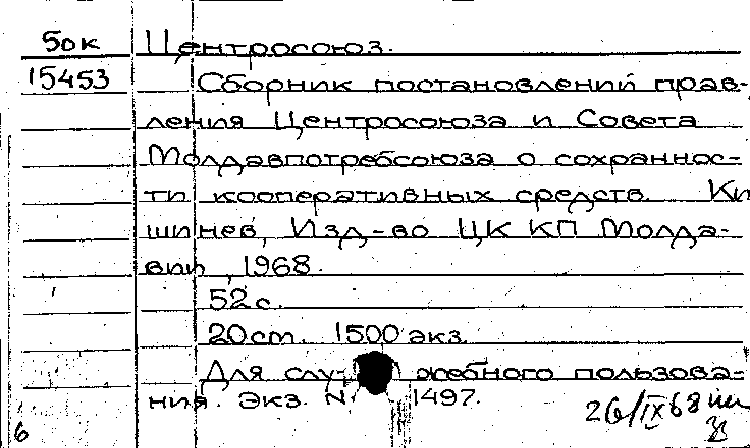 5ок Центросоюз.
15453 Сборник постановлений прав-
ления Центросоюза и Совета
Молдавпотребсоюза о сохраннос-
ти кооперативных средств. Ки
шинев, Изд-во ЦК КП Молда-
вии, 1968.
52 с.
20 cm. 1500 экз.
Для слу- жебного пользова-
ния. Экз. N 1497.
26/IX 68
6